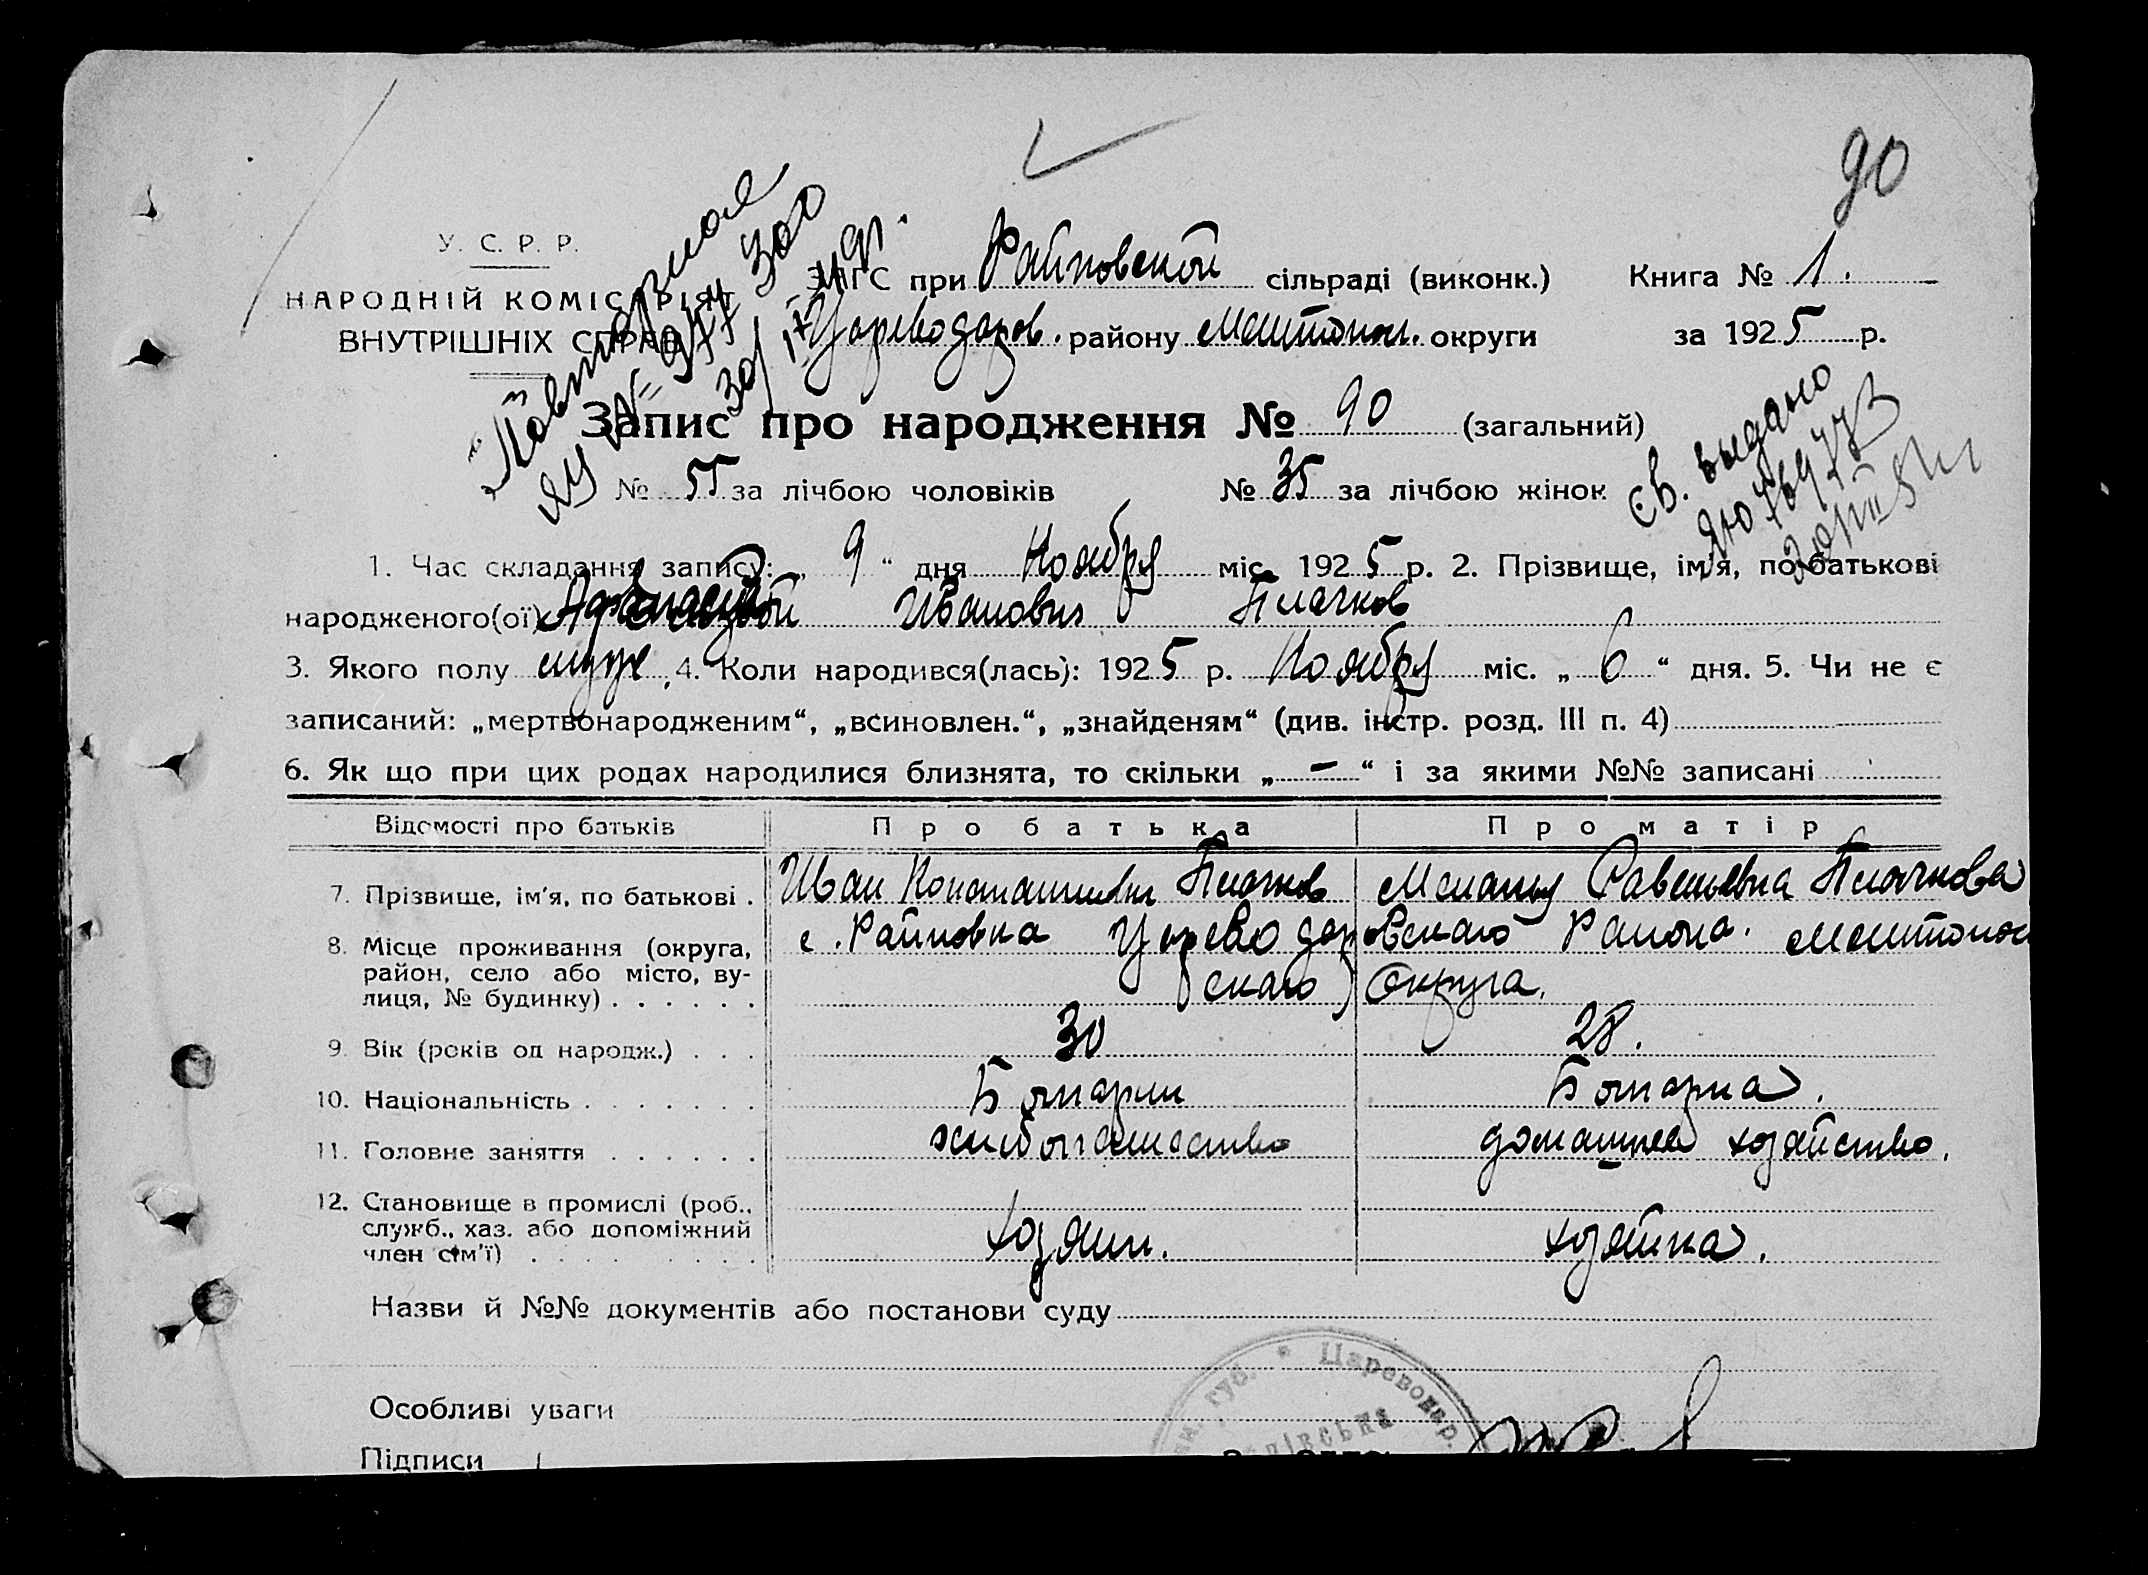 90
У. С. Р. Р.
НАРОДНІЙ КОМІСАРІЯТ
ВНУТРІШНІХ СПРАВ
ЗАГС при Райновской сільраді (виконк.) Книга № 1.
Цареводаров. району Мелитопол. округи за 1925 р.
Повторное
Св. выдано
Запис про народження № 90 (загальний)
№ 55 за лічбою чоловіків № 35 за лічбою жінок
1. Час складання запису: „ 9 “ дня Ноября міс. 1925 р. 2. Прізвище, ім'я, по батькові
народженого(ої) Иванович Плачков
3. Якого полу муж 4. Коли народився(лась): 1925 р. Ноября міс. „ 6 “ дня. 5. Чи не є
записаний: „мертвонародженим“, „всиновлен.“, „знайденям“ (див. інстр. розд. III п. 4)
6. Як що при цих родах народилися близнята, то скільки „ – “ і за якими №№ записані
Відомості про батьків Про батька Про матір
7. Прізвище, ім'я, по батькові . Иван Константинович Плачков Мелания Савельевна Плачкова
8. Місце проживання (округа, район, село або місто, вулиця, № будинку) с. Райновка Цареводаровскаго Района. Мелитопольскаго Округа.
9. Вік (років од народж.) 30 28.
10. Національність Болгарин Болгарка.
11. Головне заняття хлибопашество домашнее хозяйство.
12. Становище в промислі (роб., служб., хаз. або допоміжний член сім'ї) хозяин. хозяйка.
Назви й №№ документів або постанови суду
губ. * Цареводар.
Особливі уваги
Підписи